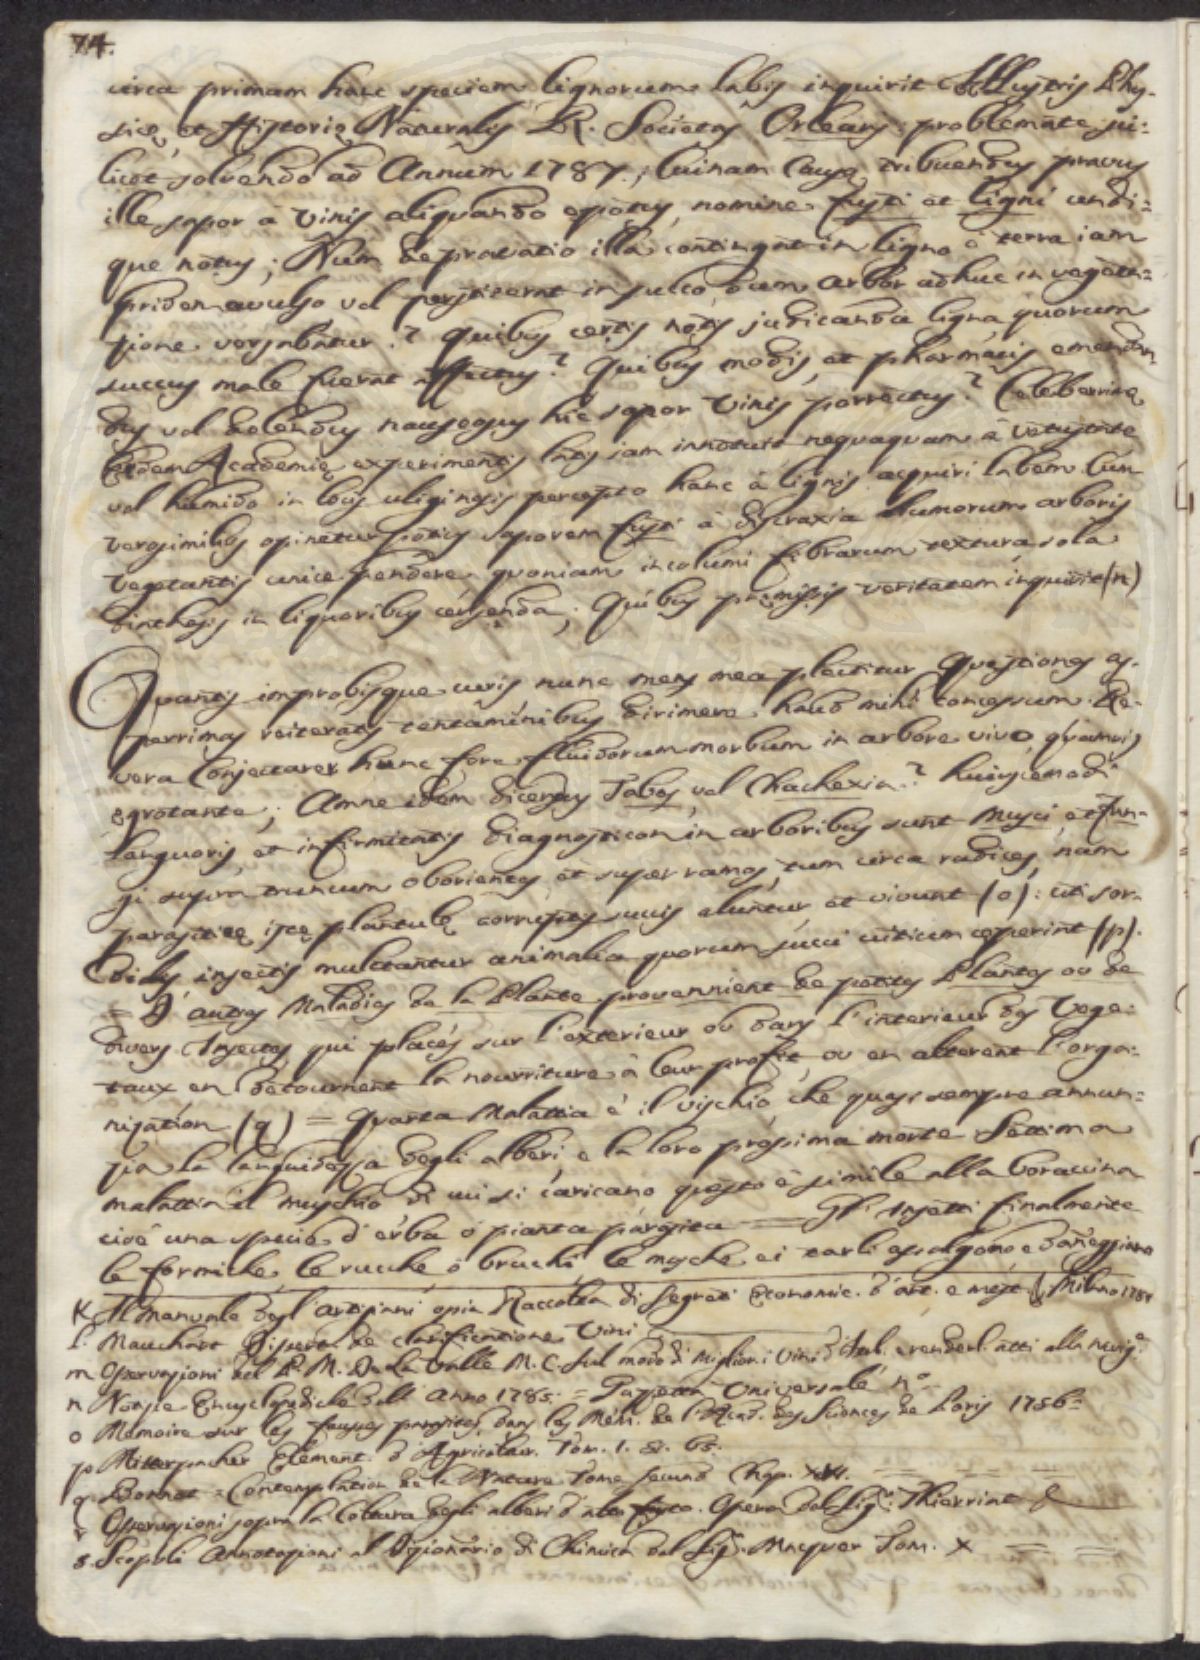 74.
circa primam hanc speciem lignorum labis inquirit Illustris Phy-
sicę, et Historię Naturalis R. Societas Orleans problemate sci-
licet solvendo ad Annum 1787., Cuinam Causę tribuendus pravus
ille sapor à Vinis aliquando epotus nomine fusti et ligni undi=
que notus; Num depravatio illa contingat in ligno è terra iam
pridem avulso, vel perstiterat in succo, dum arbor adhuc in vegeta=
tione versabatur? Quibus certis notis judicanda ligna, quorum
succus male fuerat affectus? Quibus modis, et pharmacis emendan-
dus vel delendus nauseosus hic sapor Vinis porrectus? Celeberrimę
Academię experimentis latis iam innotuit nequaquam à vetustate
vel humido in locis uliginosis percepto hanc à lignis acquiri labem. Cum
verosimilius opinetur potius saporem fusti à discraxia humorum arboris
vegetantis unice pendere, quoniam incolumi fibrarum textura sola
diathesis in liquoribus censenda; Quibus pręmissis veritatem inquirit (n)
Quantis improbisque curis nunc mens mea plectitur Quęstiones as-
perrimas reiteratis tentaminibus dirimere haud mihi concessum. Re-
vera Conjectarer hunc fore fluidorum morbum in arbore vivo, quamvis
ęgrotante; Anne idem dicendus Tabes, vel Chachexia? huiuscemodi
languoris, et infirmitatis diagnosticon in arboribus sunt Musci et Fun-
gi supra truncum oborientes, et super ramos, tum circa radices, nam
parasiticę istę plantulę corruptis succis aluntur et vivunt (o): uti sor-
didis insectis mulctantur animalia quorum succi vitium ceperint (p).
= D'autres Maladies de la Plante proviennient de petites Plantes ou de
divers Insectes, qui placés sur l'exterieur ou dans l'interieur des Vege-
taux en detournent la nourriture à leur profit, ou en alterent l'orga-
nization (q) = Quarta Malattia é il vischio, che quasi sempre annun-
zia la languidezza degli alberi, e la loro prossima morte Settima
malattia il muschio di cui si caricano questo é simile alla boraccina
cioé una specie d'erba ó pianta parasita = Gl' Insetti finalmente
le formiche le rucche ó bruchi le mosche, ei tarli assalgono e danneggiano
K Il Manuale degl'artigiani ossia Raccolta di segreti Economic. d'art. e mest. Milano 1781
l. Mauchart Disserta de clarificatione Vini
m Osservazioni del P. M. Da La Valle M. C. sul modo di migliori i Vini d'Ital. e renderl. atti alla navig.e
n Notizie Encyclopediche dell'anno 1785. = Gazzetta Universale n.o
o Memoire sur les fausses parasites, dans les Mém. de l'Acad. des Sciences de Paris 1756=
p Mitterpacher Element. d'Agricoltur. Tom. 1. §. 65.
q Bonnet = Contemplation de la Nature Tome second Chap.
r Osservazioni sopra la Coltura degli alberi d'alto fusto. Opera del Sig.r Thierriat
s. Scopoli Annotazioni al Dizionario di Chimica del Sig.r Macquer Tom. X